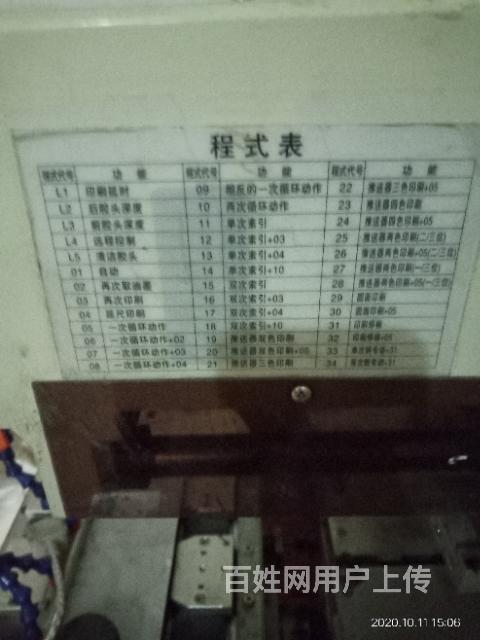 程式表
程式代号 功能 程式代号 功能 程式代号 功能
L1 印刷延时 09 相反的一次循环动作 22 推送器三色印刷+05
L2 后胶头深度 10 两次循环动作 23 推送器四色印刷
L3 前胶头深度 11 单次索引 24 推送器四色印刷+05
L4 远程控制 12 单次索引+03 25 推送器两色印刷(二/三位)
L5 清洁胶头 13 单次索引+04 26 推送器两色印刷+05(二/三位)
01 自动 14 单次索引+10 27 推送器两色印刷(一/三位)
02 再次取油墨 15 双次索引 28 推送器两色印刷+05(一/三位)
03 再次印刷 16 双次索引+03 29 圆面印刷
04 延尺印刷 17 双次索引+04 30 圆面印刷+05
05 一次循环动作 18 双次索引+10 31 印刷停感
06 一次循环动作+02 19 推送器双色印刷 32 印刷停感+05
07 一次循环动作+03 20 推送器双色印刷+05 33 +31
08 一次循环动作+04 21 推送器三色印刷 34 +31
百姓网用户上传
2020.10.11 15:06